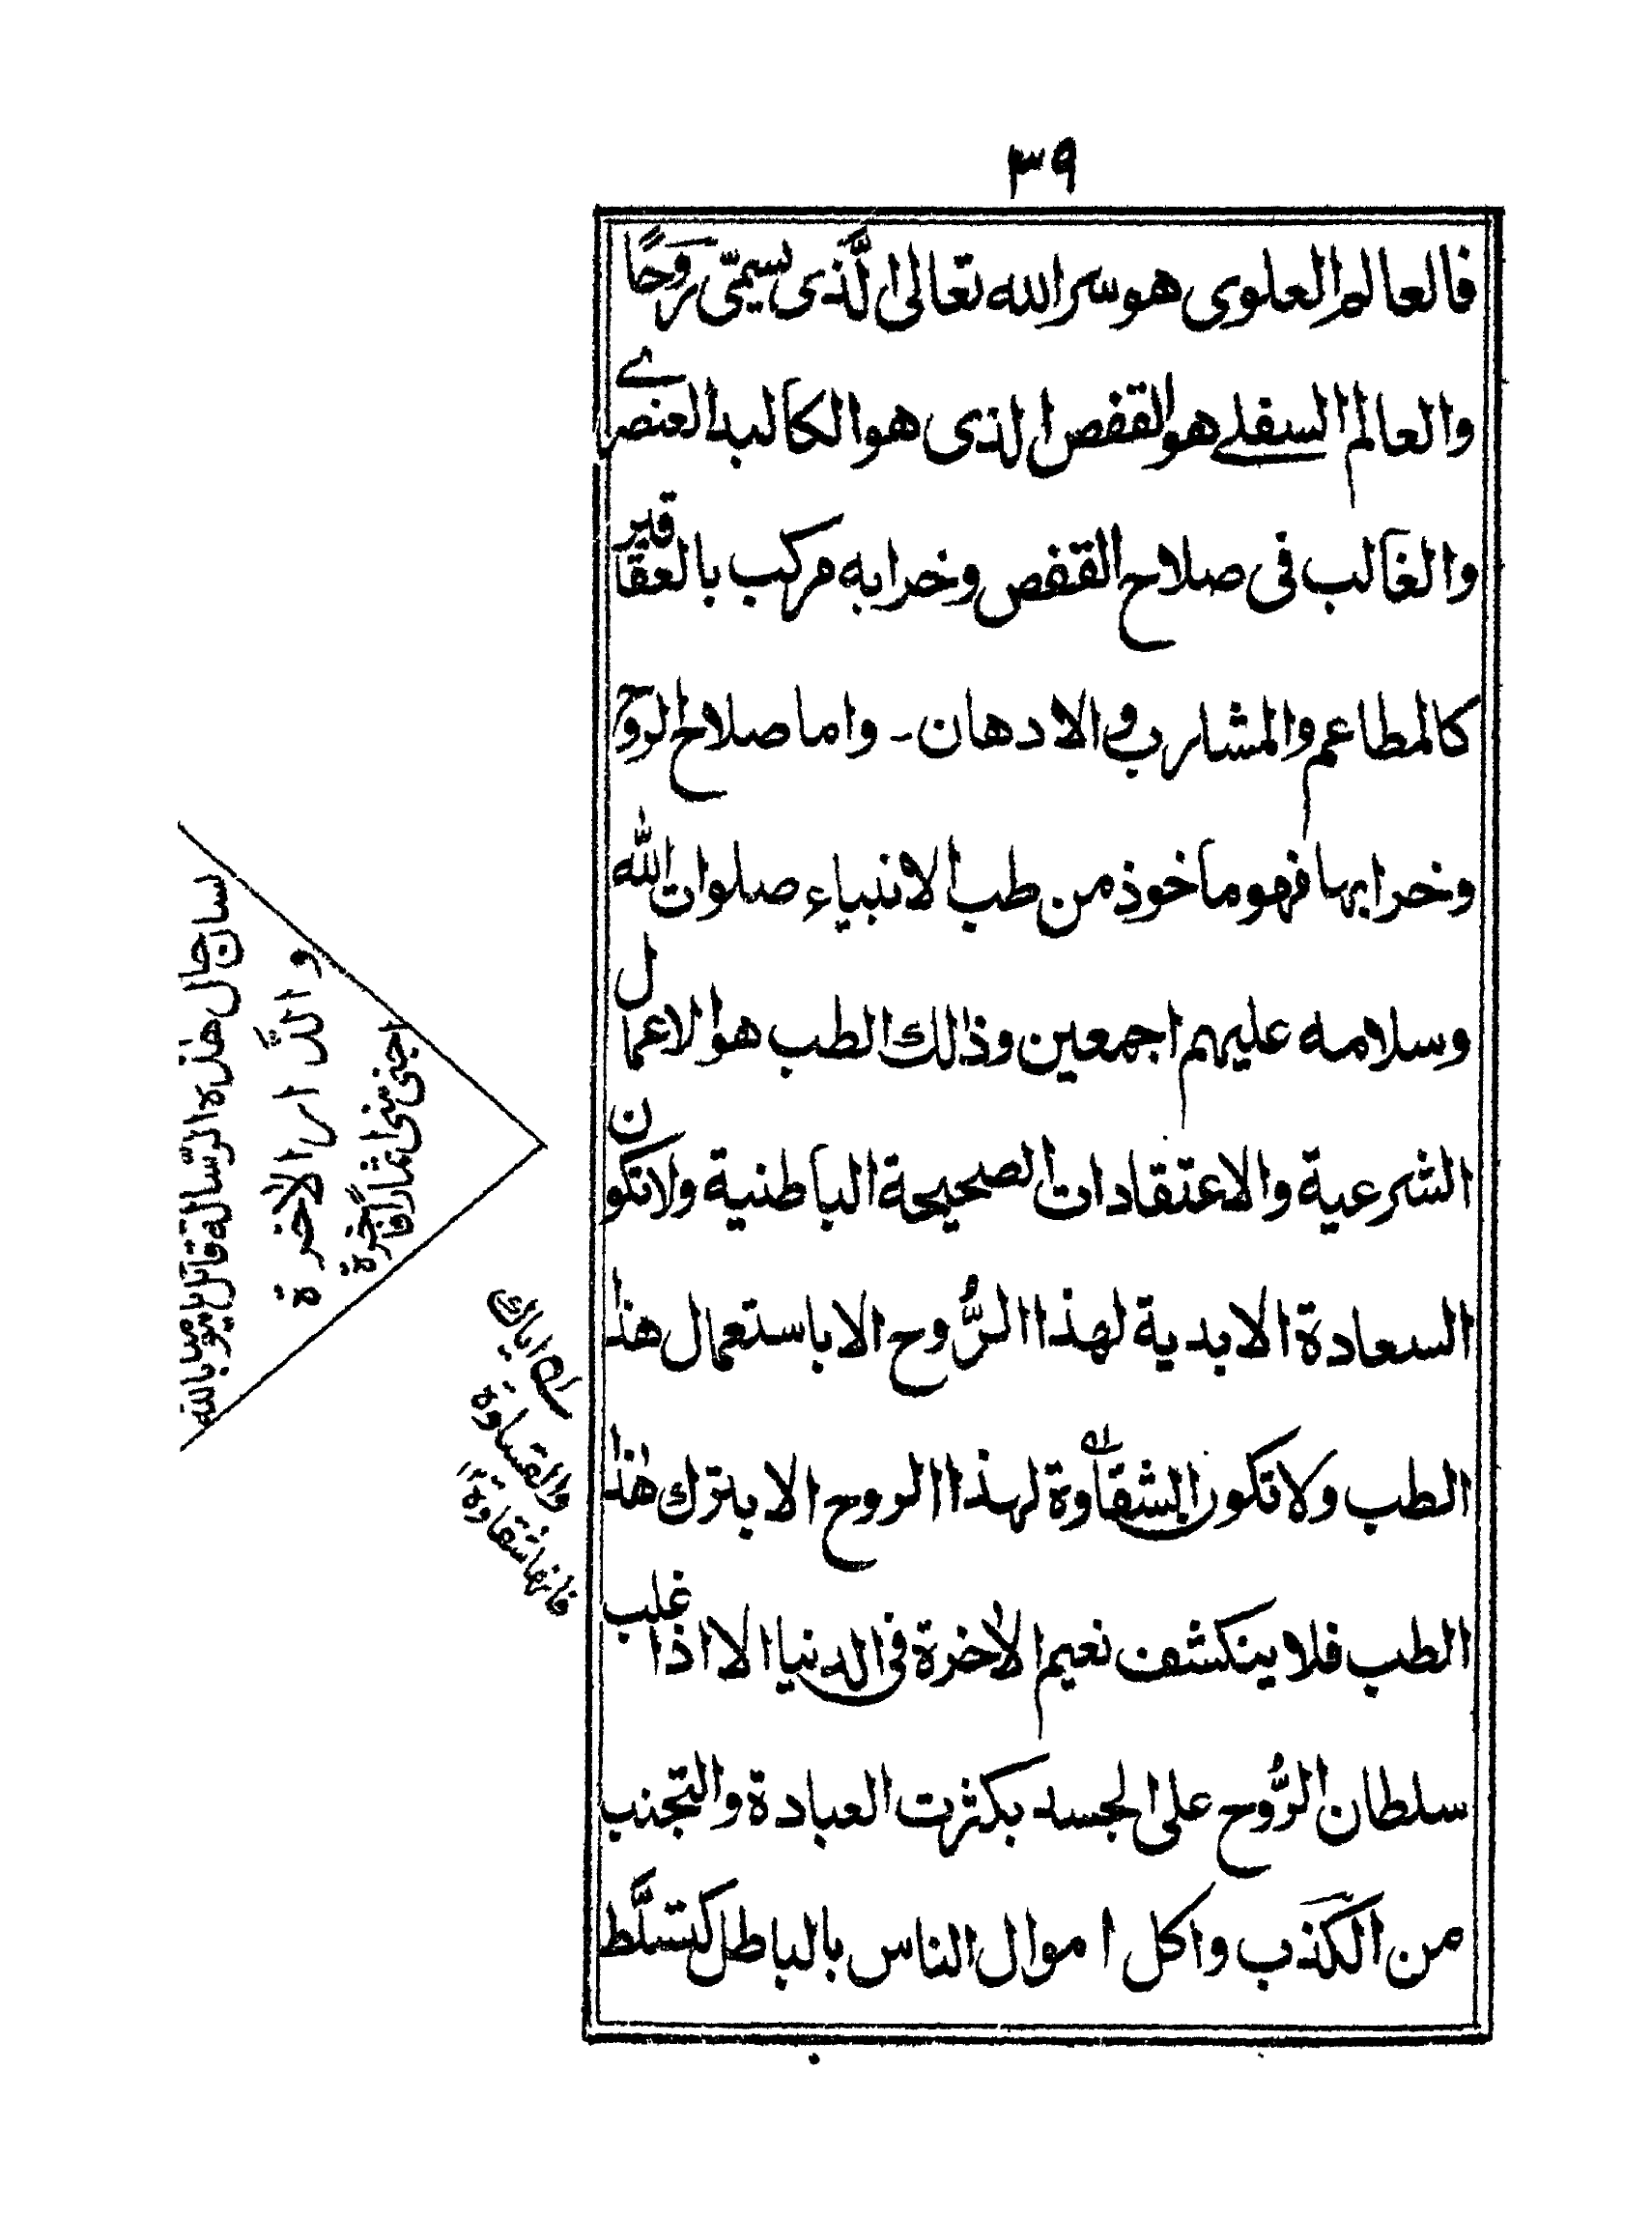 ٣٩
فالعالم العلوى هو سر الله تعالى الَّذى يسمّى رَوحًا
والعالم السفلے هو القفص الذى هو الكالبد العنصرے
والغالب فى صلاح القفص وخرابه مركب بالعقاقير
كالمطاعم والمشارب والادهان ۔ واما صلاح الروح
وخرابها فهو ماخوذ من طب الانبياء صلوات الله
وسلامه عليهم اجمعين وذالك الطب هو الاعمال
الشرعية والاعتقادات الصحيحة الباطنية ولا تكون
السعادة الابدية لهذا الرُّوح الا باستعمال هذا
الطب ولا تكون الشقاوة لهذا الروح الا بترك هٰذا
الطب فلا ينكشف نعيم الاٰخرة فى الدنيا الا اذا غلب
سلطان الرُّوح على الجسد بكثرت العبادة والتجنب
من الكَذب واكل اموال الناس بالباطل كتسلَّط
اى اياك
والقساوة
فانها شقاوة ١٢
والدَّار الاخرة